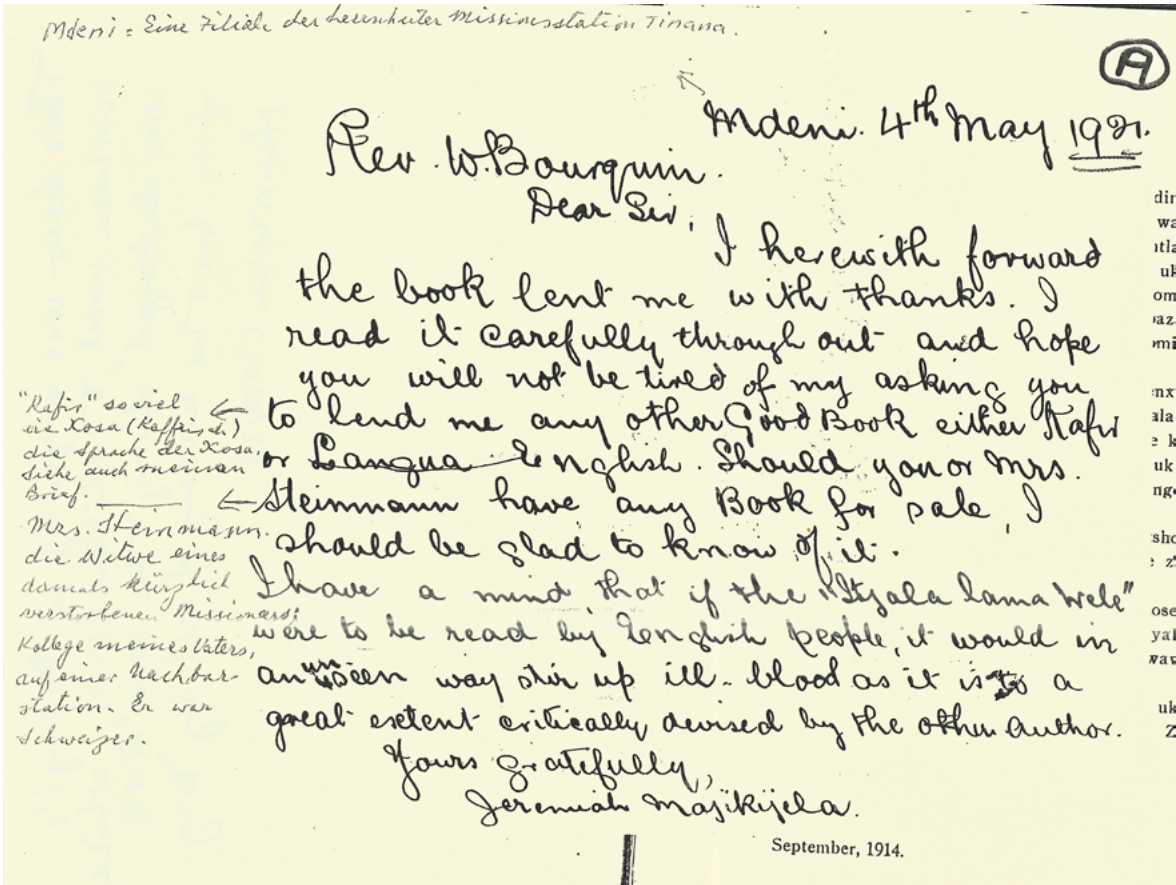 Mdeni = Eine Filiale der herrnhuter Missionsstation Tinana.
A
Mdeni. 4th May 1921.
Rev. W. Bourquin.
Dear Sir,
I herewith forward
the book lent me with thanks. I
read it carefully through out and hope
you will not be tired of my asking you
to lend me any other Good Book either Kafir
or Langua English. Should you or Mrs.
Steinmann have any Book for sale, I
should be glad to know of it.
I have a mind, that if the "Ityala lama Wele"
were to be read by English people, it would in
an unseen way stir up ill-blood as it is to a
great extent critically devised by the other Author.
Yours gratefully,
Jeremiah Majikijela.
"Kafir" soviel
wie Xosa (Kaffrisch)
die Sprache der Xosa.
Siehe auch meinen
Brief.
Mrs. Steinmann.
die Witwe eines
damals kürzlich
verstorbenen Missionars;
Kollege meines Vaters,
auf einer Nachbar-
station. Er war
Schweizer.
September, 1914.